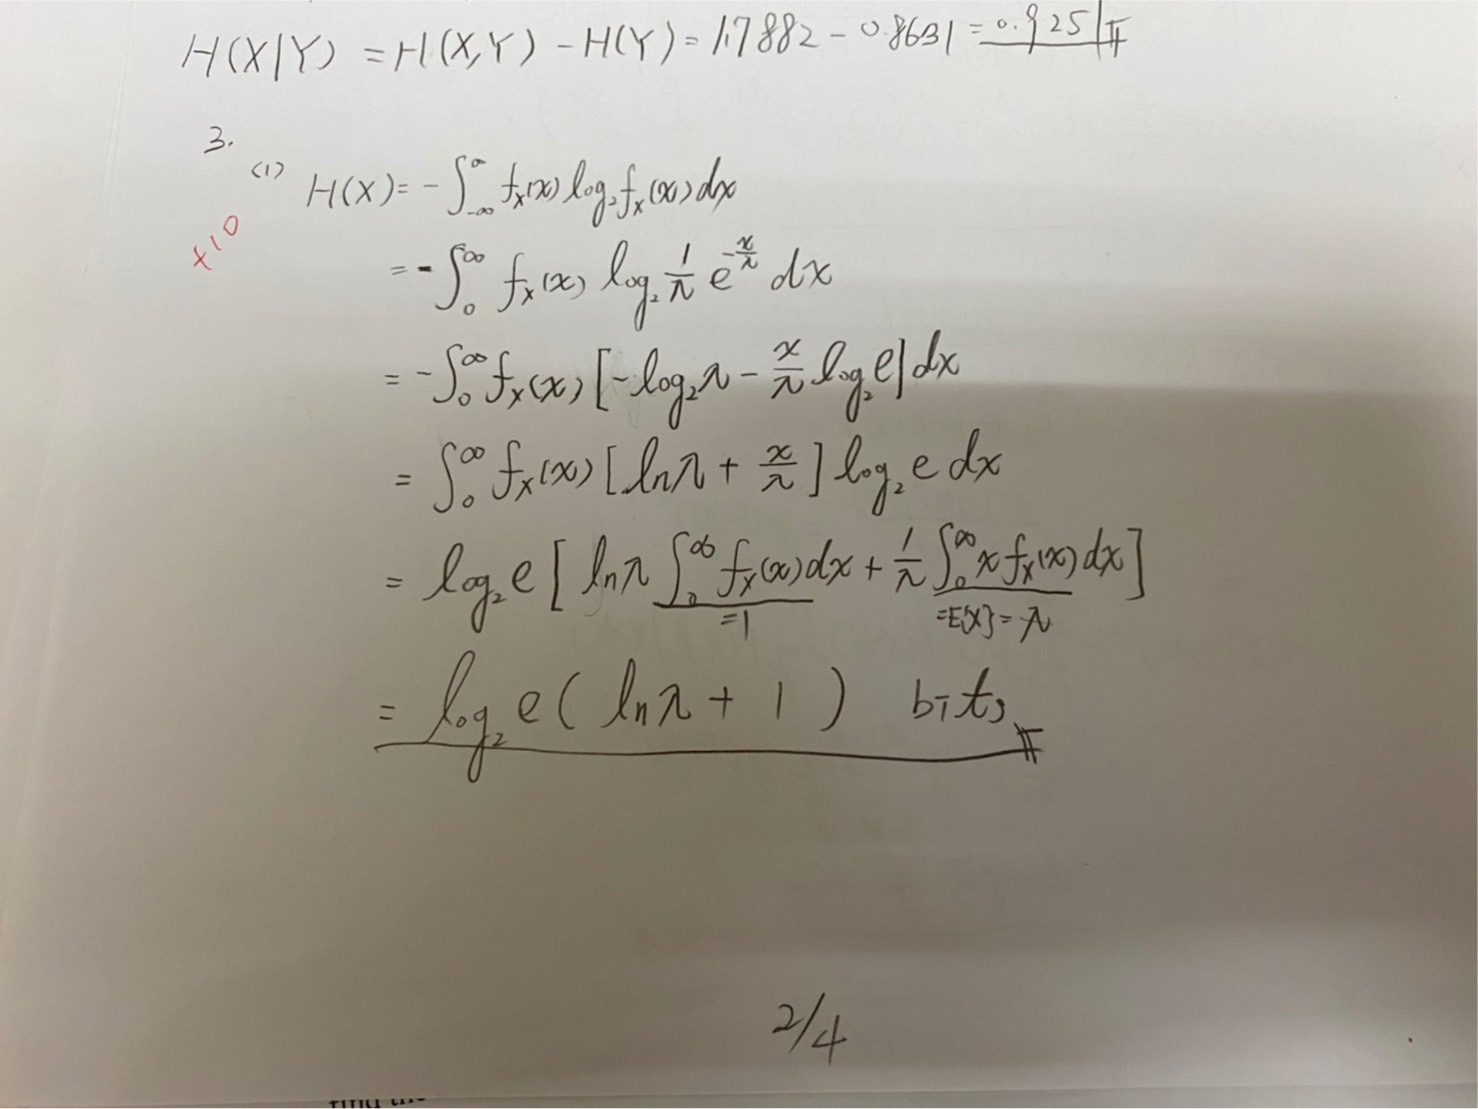 H(X|Y) = H(X,Y) - H(Y) = 1.7882 - 0.8631 = 0.9251
3.
(1) H(X) = -∫_{-∞}^{∞} f_X(x) log₂ f_X(x) dx
+10
= -∫_0^∞ f_X(x) log₂ 1/λ e^{-x/λ} dx
= -∫_0^∞ f_X(x) [-log₂λ - x/λ log₂e] dx
= ∫_0^∞ f_X(x) [lnλ + x/λ] log₂e dx
= log₂e [lnλ ∫_0^∞ f_X(x) dx + 1/λ ∫_0^∞ x f_X(x) dx]
=1 =E{X}=λ
= log₂e (lnλ + 1) bits
2/4